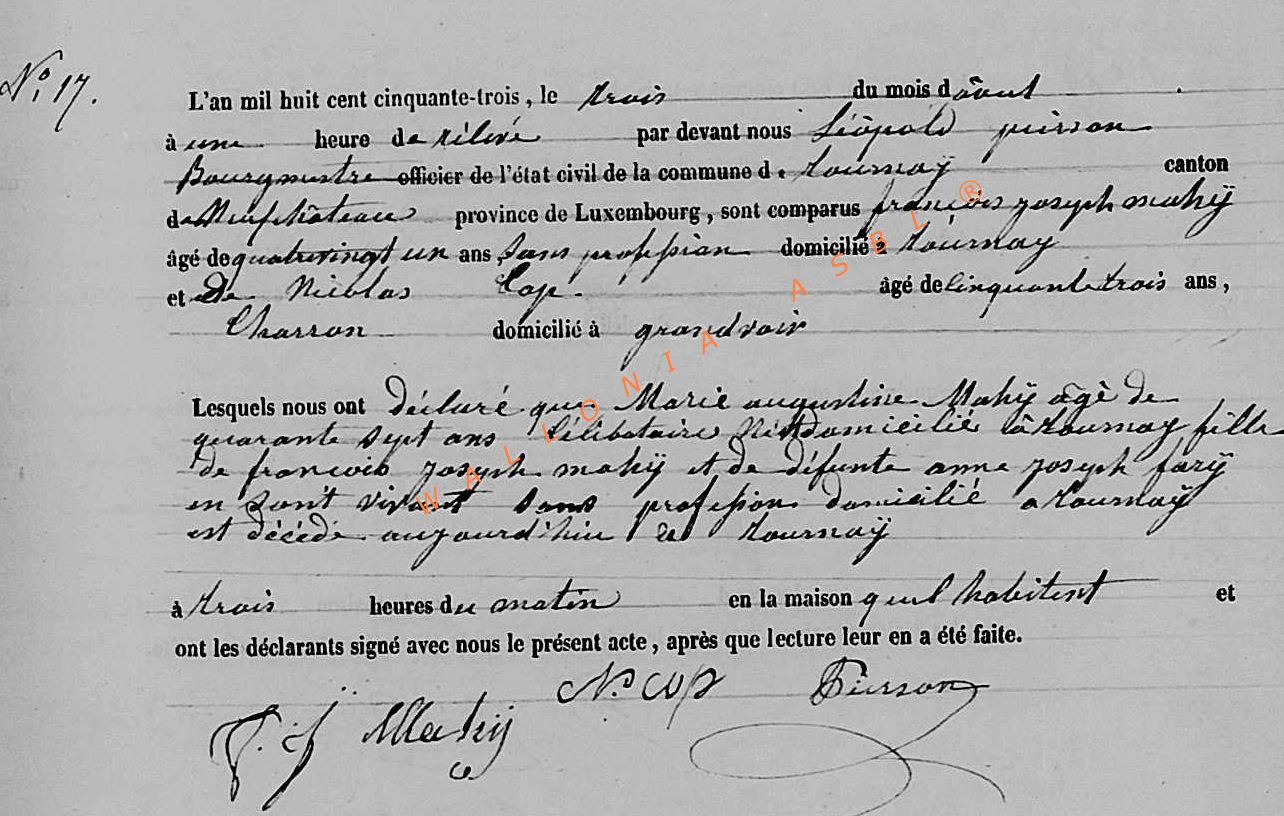 No. 17.
L'an mil huit cent cinquante-trois, le trois du mois d'août
à une heure de rélevé par devant nous Léopold pierson
Bourgmestre officier de l'état civil de la commune de tournay canton
de Neufchâteau province de Luxembourg, sont comparus françois joseph mahÿ
âgé de quatrevingt un ans, sans profession domicilié à tournay
et de Nicolas Cop. âgé de cinquante trois ans,
Charron domicilié à grandvoir
Lesquels nous ont déclaré que Marie augustine Mahÿ âgé de
quarante sept ans Célibataire domicilié à tournay fille
de francois joseph mahÿ et de défunte anne joseph
en son vivant sans profession domicilié a tournaÿ
est décédé aujourd'hui à tournaÿ
à trois heures du matin en la maison quil habitent et
ont les déclarants signé avec nous le présent acte, après que lecture leur en a été faite.
N. cop Pierson
F. j Mahij
WALLONIA ASBL ®